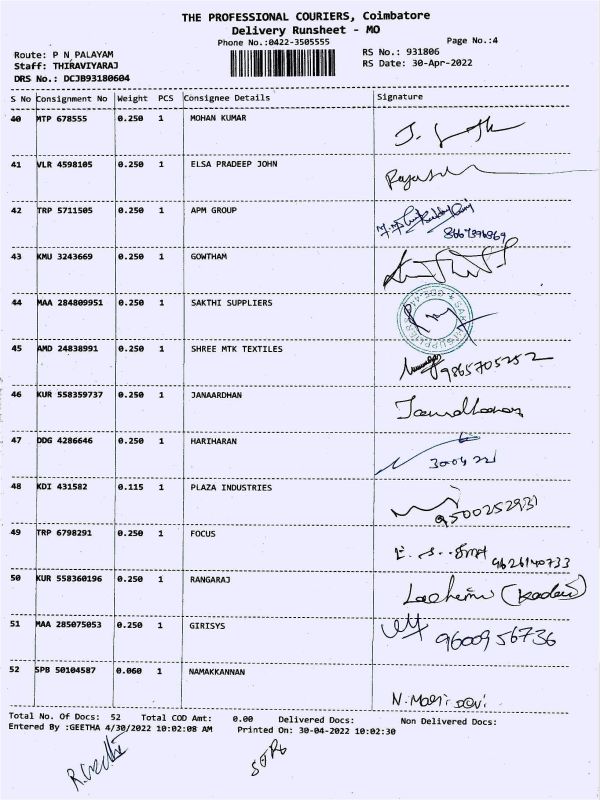 THE PROFESSIONAL COURIERS, Coimbatore
Delivery Runsheet - MO
Phone No.:0422-3505555
Page No.:4
Route: P N PALAYAM
RS No.: 931806
Staff: THIRAVIYARAJ
RS Date: 30-Apr-2022
DRS No.: DCJB93180604
S No Consignment No Weight PCS Consignee Details Signature
40 MTP 678555 0.250 1 MOHAN KUMAR
41 VLR 4598105 0.250 1 ELSA PRADEEP JOHN
42 TRP 5711505 0.250 1 APM GROUP
43 KMU 3243669 0.250 1 GOWTHAM
44 MAA 284809951 0.250 1 SAKTHI SUPPLIERS
45 AMD 24838991 0.250 1 SHREE MTK TEXTILES
9865705252
46 KUR 558359737 0.250 1 JANAARDHAN
47 DDG 4286646 0.250 1 HARIHARAN
48 KDI 431582 0.115 1 PLAZA INDUSTRIES
9500252931
49 TRP 6798291 0.250 1 FOCUS
9626140733
50 KUR 558360196 0.250 1 RANGARAJ
51 MAA 285075053 0.250 1 GIRISYS
9600956736
52 SPB 50104587 0.060 1 NAMAKKANNAN
Total No. Of Docs: 52 Total COD Amt: 0.00 Delivered Docs: Non Delivered Docs:
Entered By :GEETHA 4/30/2022 10:02:08 AM Printed On: 30-04-2022 10:02:30